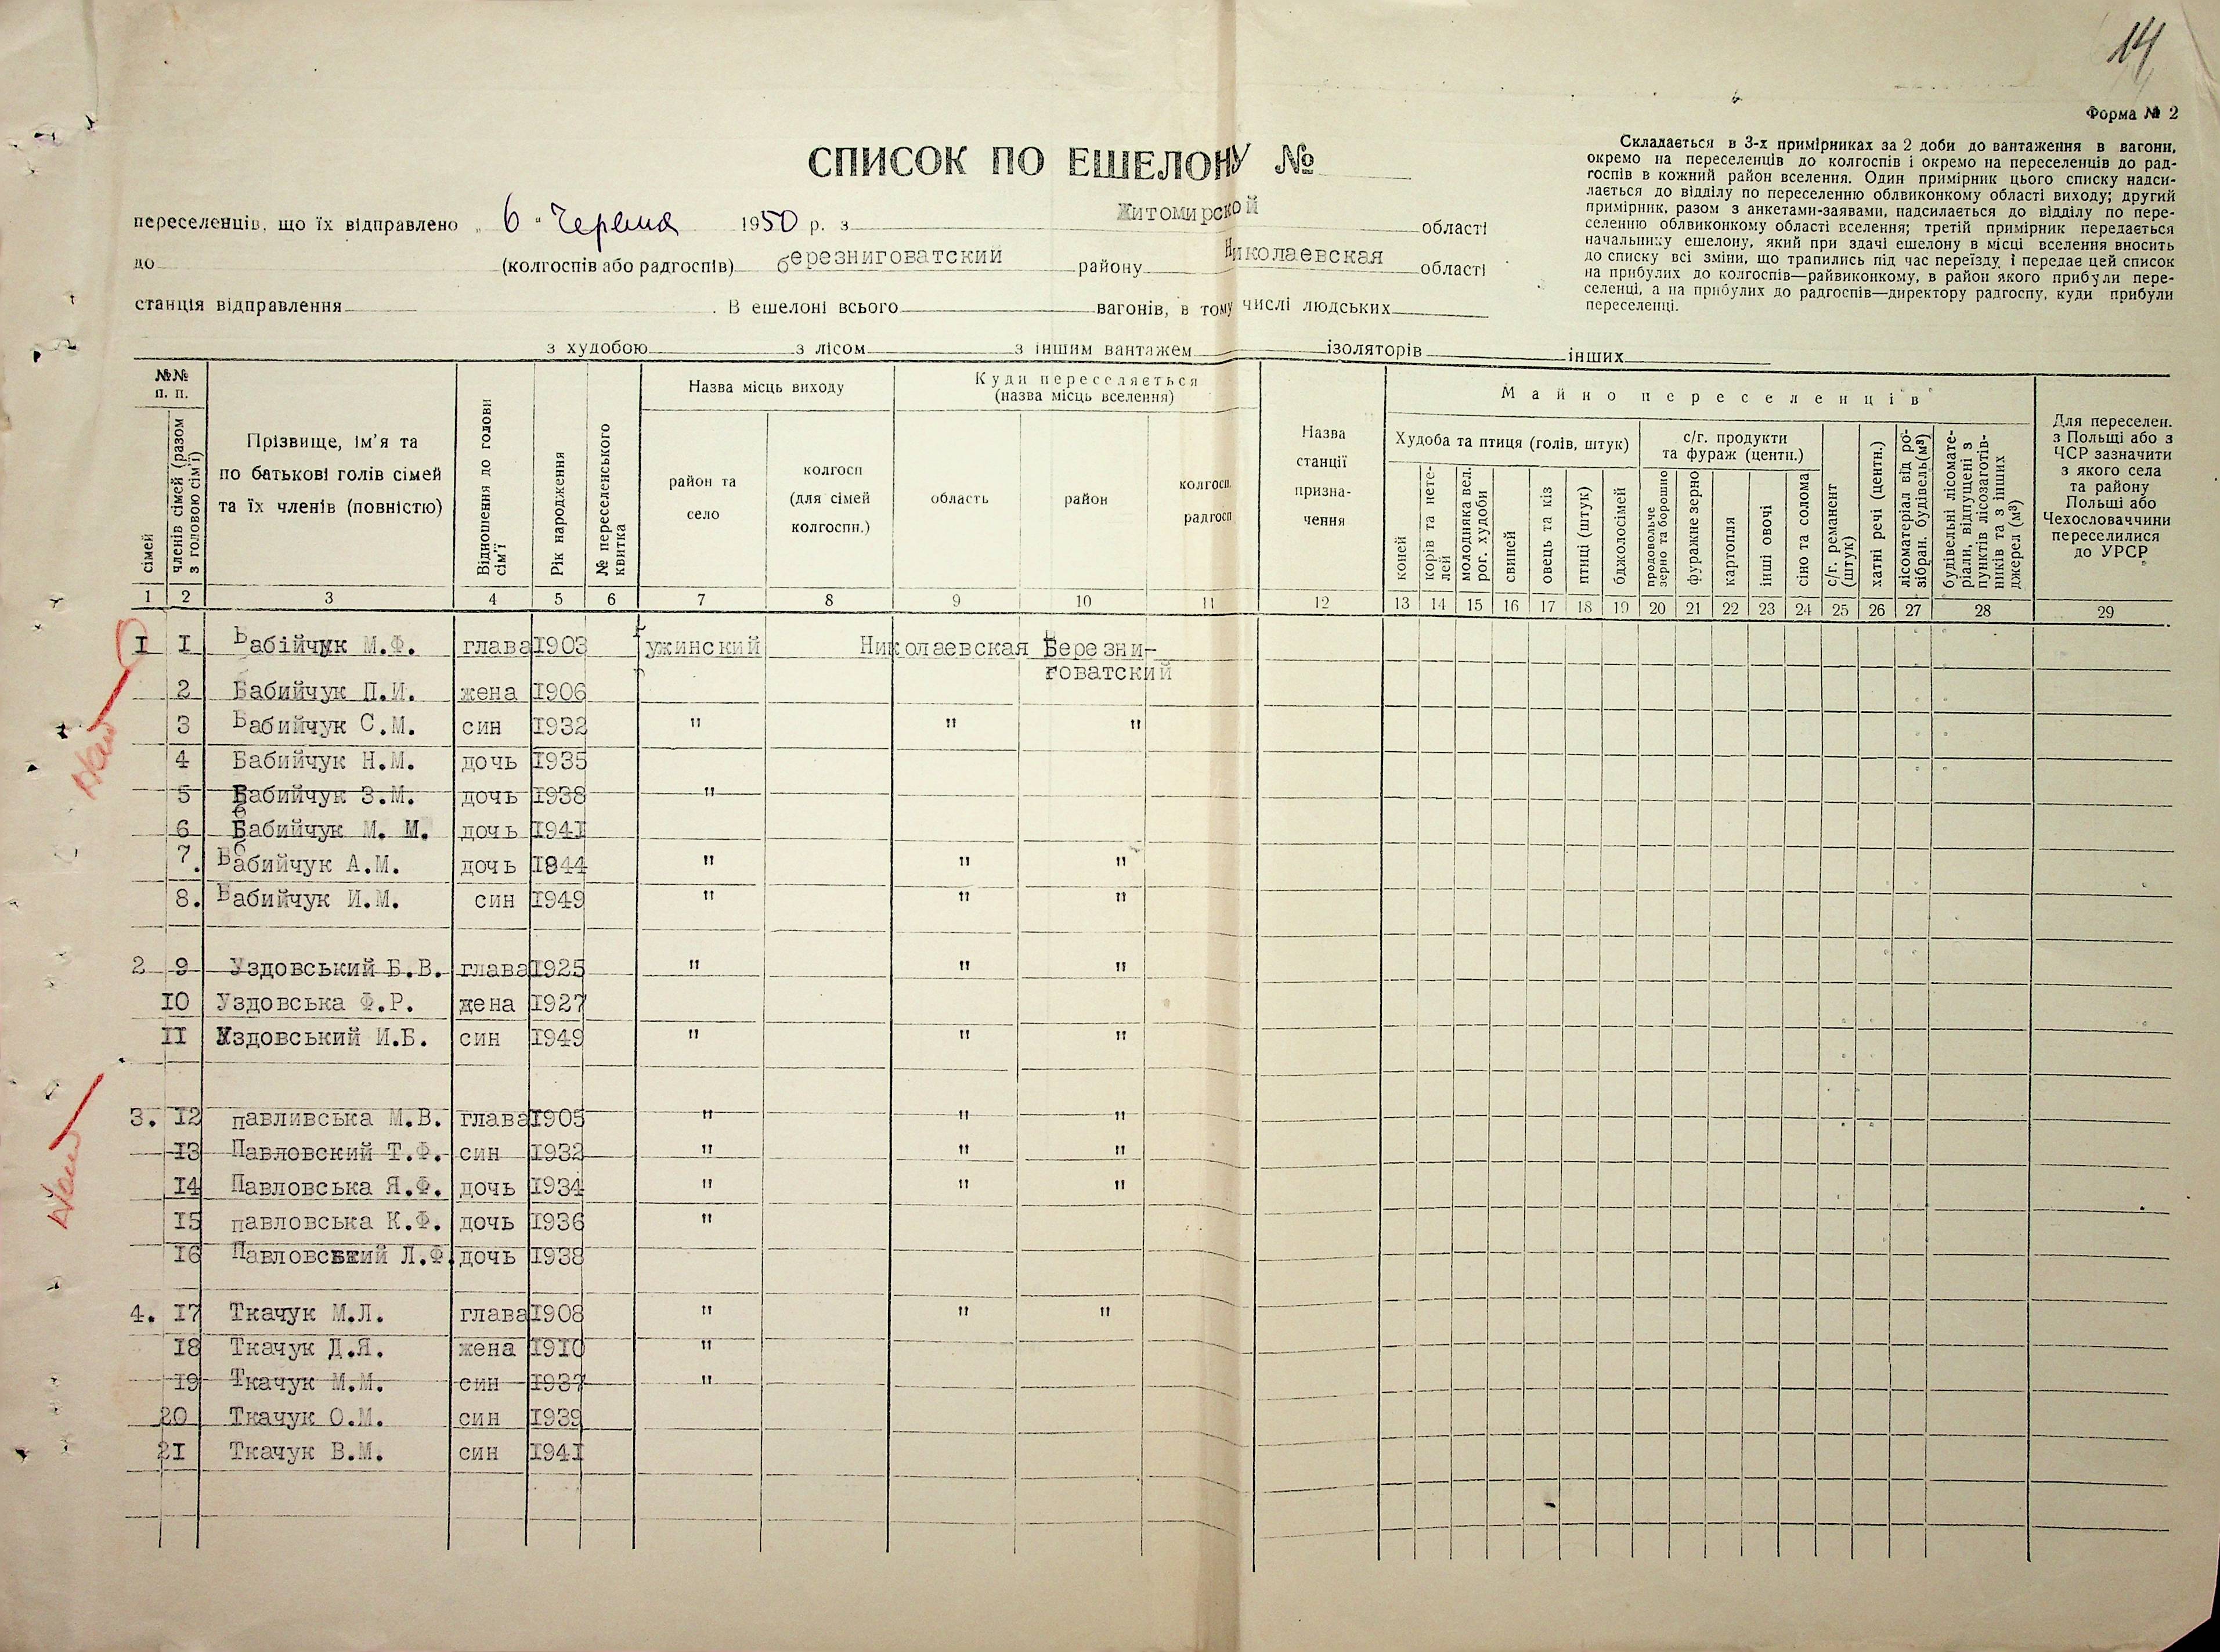 14
Форма № 2
СПИСОК ПО ЕШЕЛОНУ №
Складається в 3-х примірниках за 2 доби до вантаження в вагони,
окремо на переселенців до колгоспів і окремо на переселенців до рад-
госпів в кожний район вселення. Один примірник цього списку надси-
лається до відділу по переселенню облвиконкому області виходу; другий
примірник, разом з анкетами-заявами, надсилається до відділу по пере-
селенню облвиконкому області вселення; третій примірник передається
начальнику ешелону, який при здачі ешелону в місці вселення вносить
до списку всі зміни, що трапились під час переїзду і передає цей список
на прибулих до колгоспів—райвиконкому, в район якого прибули пере-
селенці, а на прибулих до радгоспів—директору радгоспу, куди прибули
переселенці.
переселенців, що їх відправлено „ 6 " Червня 1950 р. з Житомирской області
до (колгоспів або радгоспів) березниговатский району Николаевская області
станція відправлення . В ешелоні всього вагонів, в тому числі людських
з худобою з лісом з іншим вантажем ізоляторів інших
№№ п. п.
сімей
членів сімей (разом з головою сім'ї)
Прізвище, ім'я та
по батькові голів сімей
та їх членів (повністю)
Відношення до голови сім'ї
Рік народження
№ переселенського квитка
Назва місць виходу
район та
село
колгосп
(для сімей
колгоспн.)
Куди переселяється
(назва місць вселення)
область
район
колгосп,
радгосп
Назва
станції
призна-
чення
Майно переселенців
Худоба та птиця (голів, штук)
коней
корів та нете-
лей
молодняка вел.
рог. худоби
свиней
овець та кіз
птиці (штук)
бджолосімей
с/г. продукти
та фураж (центн.)
продовольче
зерно та борошно
фуражне зерно
картопля
інші овочі
сіно та солома
с/г. реманент
(штук)
хатні речі (центн.)
лісоматеріал від ро-
зібран. будівель(м³)
будівельні лісомате-
ріали, відпущені з
пунктів лісозаготів-
ників та з інших
джерел (м³)
Для переселен.
з Польщі або з
ЧСР зазначити
з якого села
та району
Польщі або
Чехословаччини
переселилися
до УРСР
1 2 3 4 5 6 7 8 9 10 11 12 13 14 15 16 17 18 19 20 21 22 23 24 25 26 27 28 29
I I Бабійчук М.Ф. глава 1903 Гужинский Николаевская Березни-
говатский
2 Бабийчук П.И. жена 1906
3 Бабийчук С.М. син 1932 " " "
4 Бабийчук Н.М. дочь 1935
5 Бабийчук З.М. дочь 1938 "
6 Бабийчук М. М. дочь 1941
7. Бабийчук А.М. дочь 1944 " " "
8. Бабийчук И.М. син 1949 " " "
2 9 Уздовський Б.В. глава 1925 " " "
10 Уздовська Ф.Р. жена 1927
II Уздовський И.Б. син 1949 " " "
3. 12 павливська М.В. глава 1905 " " "
13 Павловский Т.Ф. син 1932 " " "
14 Павловська Я.Ф. дочь 1934 " " "
15 павловська К.Ф. дочь 1936 "
16 Павловський Л.Ф. дочь 1938
4. 17 Ткачук М.Л. глава 1908 " " "
18 Ткачук Д.Я. жена 1910 "
19 Ткачук М.М. син 1937 "
20 Ткачук О.М. син 1939
21 Ткачук В.М. син 1941